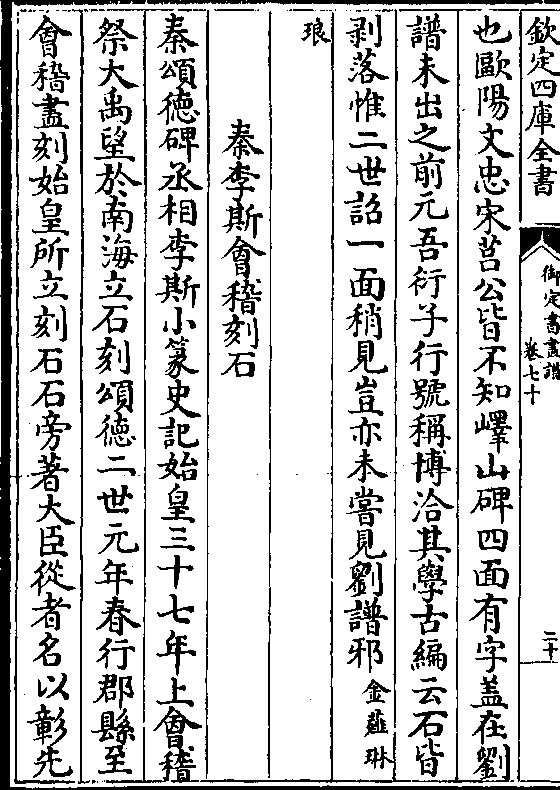 欽定四庫全書
御定書畫譜
卷七十
二十
也歐陽文忠宋莒公皆不知嶧山碑四面有字蓋在劉
譜未出之前元吾衍子行號稱博洽其學古編云石皆
剥落惟二世詔一面稍見豈亦未嘗見劉譜邪金薤琳
琅
秦李斯會稽刻石
秦頌德碑丞相李斯小篆史記始皇三十七年上會稽
祭大禹望於南海立石刻頌德二世元年春行郡縣至
會稽盡刻始皇所立刻石石旁著大臣從者名以彰先